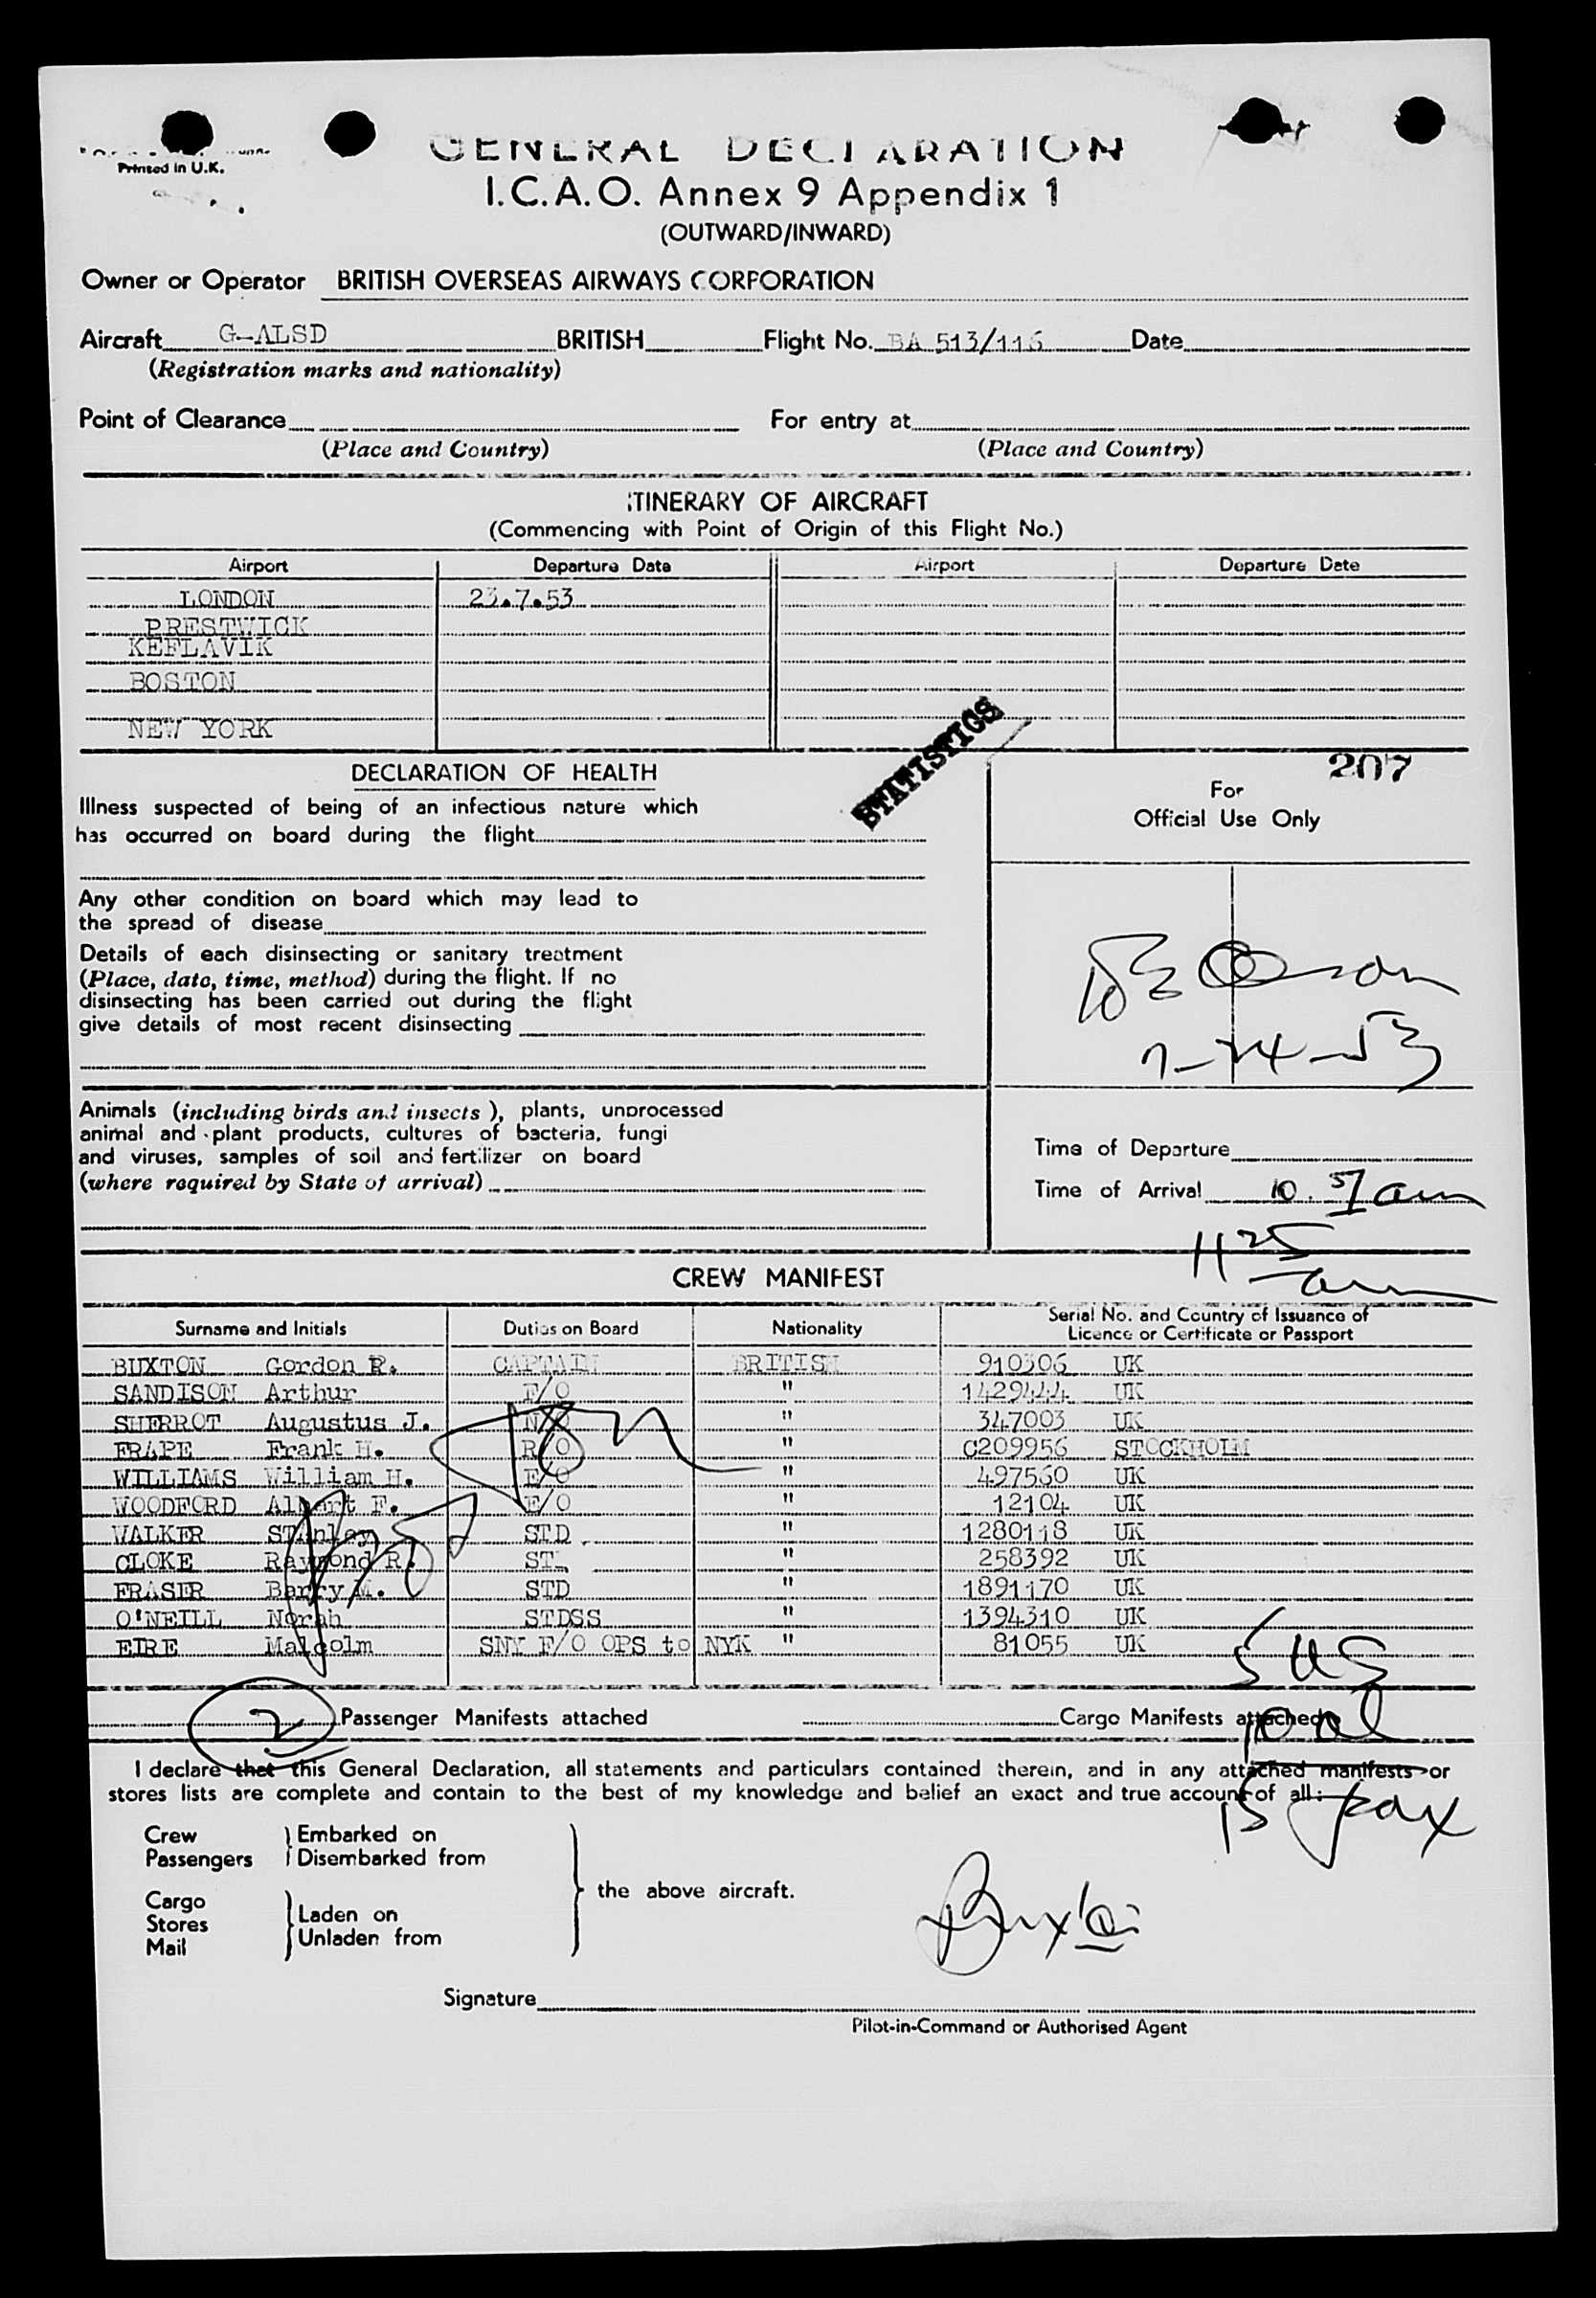 Printed in U.K.
GENERAL DECLARATION
I.C.A.O. Annex 9 Appendix 1
(OUTWARD/INWARD)
Owner or Operator BRITISH OVERSEAS AIRWAYS CORPORATION
Aircraft G-ALSD BRITISH Flight No. BA 513/116 Date
(Registration marks and nationality)
Point of Clearance For entry at
(Place and Country) (Place and Country)
ITINERARY OF AIRCRAFT
(Commencing with Point of Origin of this Flight No.)
Airport Departure Date Airport Departure Date
LONDON 23.7.53
PRESTWICK
KEFLAVIK
BOSTON
NEW YORK
STATISTICS
207
DECLARATION OF HEALTH
For
Official Use Only
Illness suspected of being of an infectious nature which
has occurred on board during the flight
Any other condition on board which may lead to
the spread of disease
Details of each disinsecting or sanitary treatment
(Place, date, time, method) during the flight. If no
disinsecting has been carried out during the flight
give details of most recent disinsecting
7-24-53
Animals (including birds and insects), plants, unprocessed
animal and plant products, cultures of bacteria, fungi
and viruses, samples of soil and fertilizer on board
(where required by State of arrival)
Time of Departure
Time of Arrival 10.57 am
11 25 am
CREW MANIFEST
Surname and Initials Duties on Board Nationality Serial No. and Country of Issuance of
Licence or Certificate or Passport
BUXTON Gordon R. CAPTAIN BRITISH 910306 UK
SANDISON Arthur F/O " 1429444 UK
SHERROT Augustus J. N/O " 347003 UK
FRAPE Frank H. R/O " C209956 STOCKHOLM
WILLIAMS William H. E/O " 497560 UK
WOODFORD Albert F. E/O " 12104 UK
WALKER STanley STD " 1280118 UK
CLOKE Raymond R. ST " 258392 UK
FRASER Barry M. STD " 1891170 UK
O'NEILL Norah STDSS " 1394310 UK
EIRE Malcolm SNY F/O OPS to NYK " 81055 UK
5 US
10 al
15 pax
2 Passenger Manifests attached Cargo Manifests attached
I declare that this General Declaration, all statements and particulars contained therein, and in any attached manifests or
stores lists are complete and contain to the best of my knowledge and belief an exact and true account of all:
Crew
Passengers
Embarked on
Disembarked from
Cargo
Stores
Mail
Laden on
Unladen from
the above aircraft.
Buxton
Signature
Pilot-in-Command or Authorised Agent